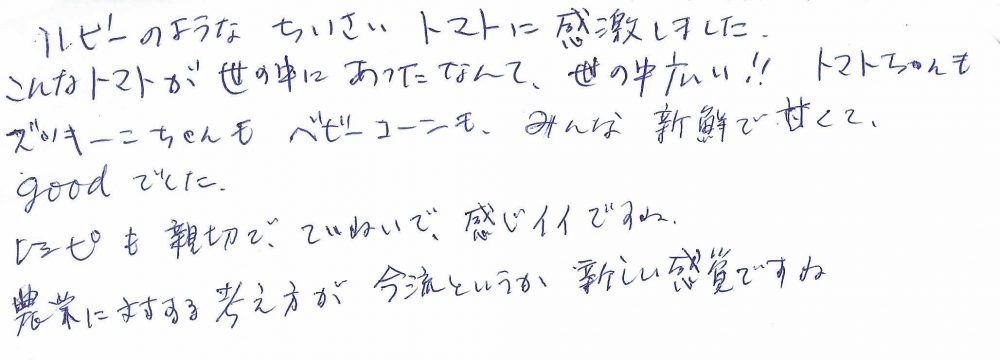 ルビーのような ちいさい トマトに 感激しました.
こんなトマトが 世の中に あったなんて、世の中広い!! トマトちゃんも
ズッキーニちゃんも ベビーコーンも、みんな 新鮮で 甘くて、
good でした.
レシピも 親切で、ていねいで、感じイイですね.
農業に対する 考え方が 今流というか 新しい感覚ですね